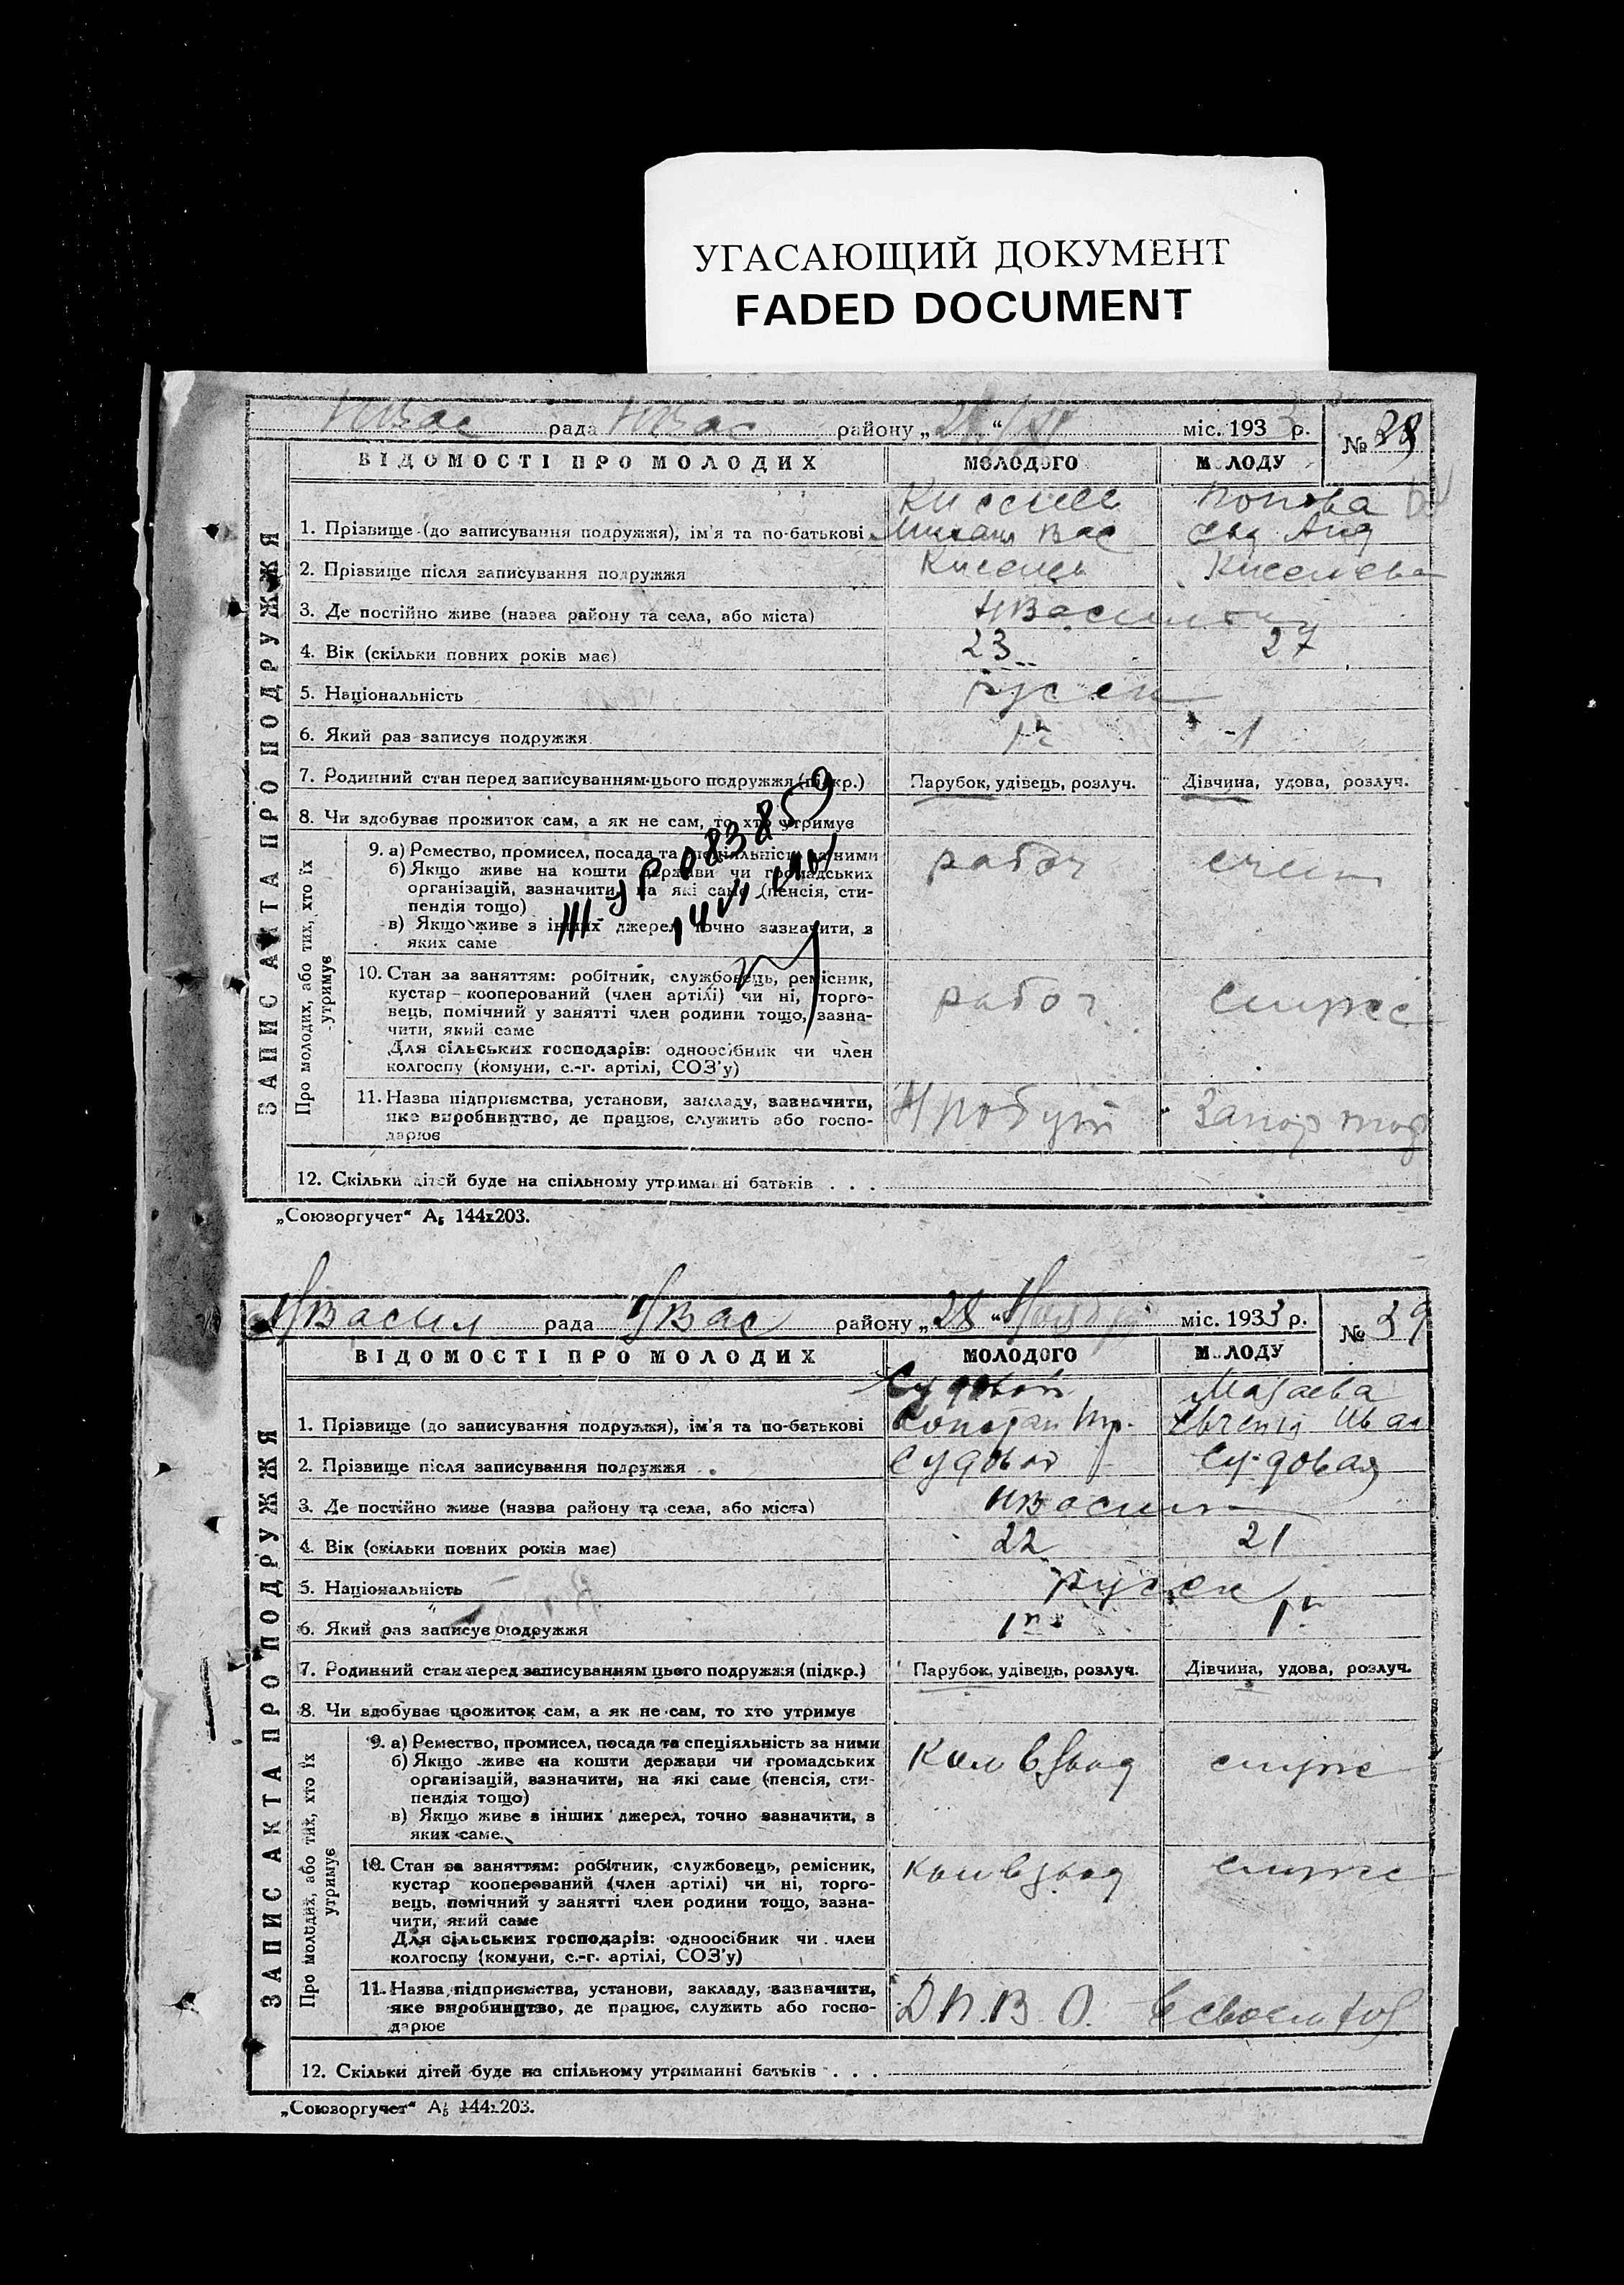 УГАСАЮЩИЙ ДОКУМЕНТ
FADED DOCUMENT
НВас рада НВас району „28“ міс. 1933 р. №
ВІДОМОСТІ ПРО МОЛОДИХ МОЛОДОГО МОЛОДУ
ЗАПИС АКТА ПРО ПОДРУЖЖЯ
Попова
1. Прізвище (до записування подружжя), ім'я та по-батькові Михаил Вас Ева Анд
2. Прізвище після записування подружжя Киселев Киселева
3. Де постійно живе (назва району та села, або міста)
4. Вік (скільки повних років має) 23 27
5. Національність русск
6. Який раз записує подружжя 1
7. Родинний стан перед записуванням цього подружжя (підкр.) Парубок, удівець, розлуч. Дівчина, удова, розлуч.
8. Чи здобуває прожиток сам, а як не сам, то хто утримує
Про молодих, або тих, хто їх утримує
9. а) Ремество, промисел, посада та спеціяльність за ними рабоч
б) Якщо живе на кошти держави чи громадських
організацій, зазначити, на які саме (пенсія, сти-
пендія тощо)
в) Якщо живе з інших джерел, точно зазначити, з
яких саме
10. Стан за заняттям: робітник, службовець, ремісник,
кустар – кооперований (член артілі) чи ні, торго-
вець, помічний у занятті член родини тощо, зазна-
чити, який саме
рабоч служ
Для сільських господарів: одноосібник чи член
колгоспу (комуни, с.-г. артілі, СОЗ'у)
11. Назва підприємства, установи, закладу, зазначити,
яке виробництво, де працює, служить або госпо-
дарює
12. Скільки дітей буде на спільному утриманні батьків . . .
„Союзоргучет“ А5 144х203.
НВасил рада НВас району „28“ Ноября міс. 1933 р. № 39
ВІДОМОСТІ ПРО МОЛОДИХ МОЛОДОГО МОЛОДУ
ЗАПИС АКТА ПРО ПОДРУЖЖЯ
Судовой Мазаева
1. Прізвище (до записування подружжя), ім'я та по-батькові Евгения Иван
2. Прізвище після записування подружжя Судовой Судовая
3. Де постійно живе (назва району та села, або міста) НВасил
4. Вік (скільки повних років має) 22 21
5. Національність русск
6. Який раз записує подружжя 1й 1й
7. Родинний стан перед записуванням цього подружжя (підкр.) Парубок, удівець, розлуч. Дівчина, удова, розлуч.
8. Чи здобуває прожиток сам, а як не сам, то хто утримує
Про молодих, або тих, хто їх утримує
9. а) Ремество, промисел, посада та спеціяльність за ними Ком взвод служ
б) Якщо живе на кошти держави чи громадських
організацій, зазначити, на які саме (пенсія, сти-
пендія тощо)
в) Якщо живе з інших джерел, точно зазначити, з
яких саме
10. Стан за заняттям: робітник, службовець, ремісник, Ком взвод служ
кустар кооперований (член артілі) чи ні, торго-
вець, помічний у занятті член родини тощо, зазна-
чити, який саме
Для сільських господарів: одноосібник чи член
колгоспу (комуни, с.-г. артілі, СОЗ'у)
11. Назва підприємства, установи, закладу, зазначити,
яке виробництво, де працює, служить або госпо-
дарює
Д.П.В.О.
12. Скільки дітей буде на спільному утриманні батьків . . .
„Союзоргучет“ А5 144х203.